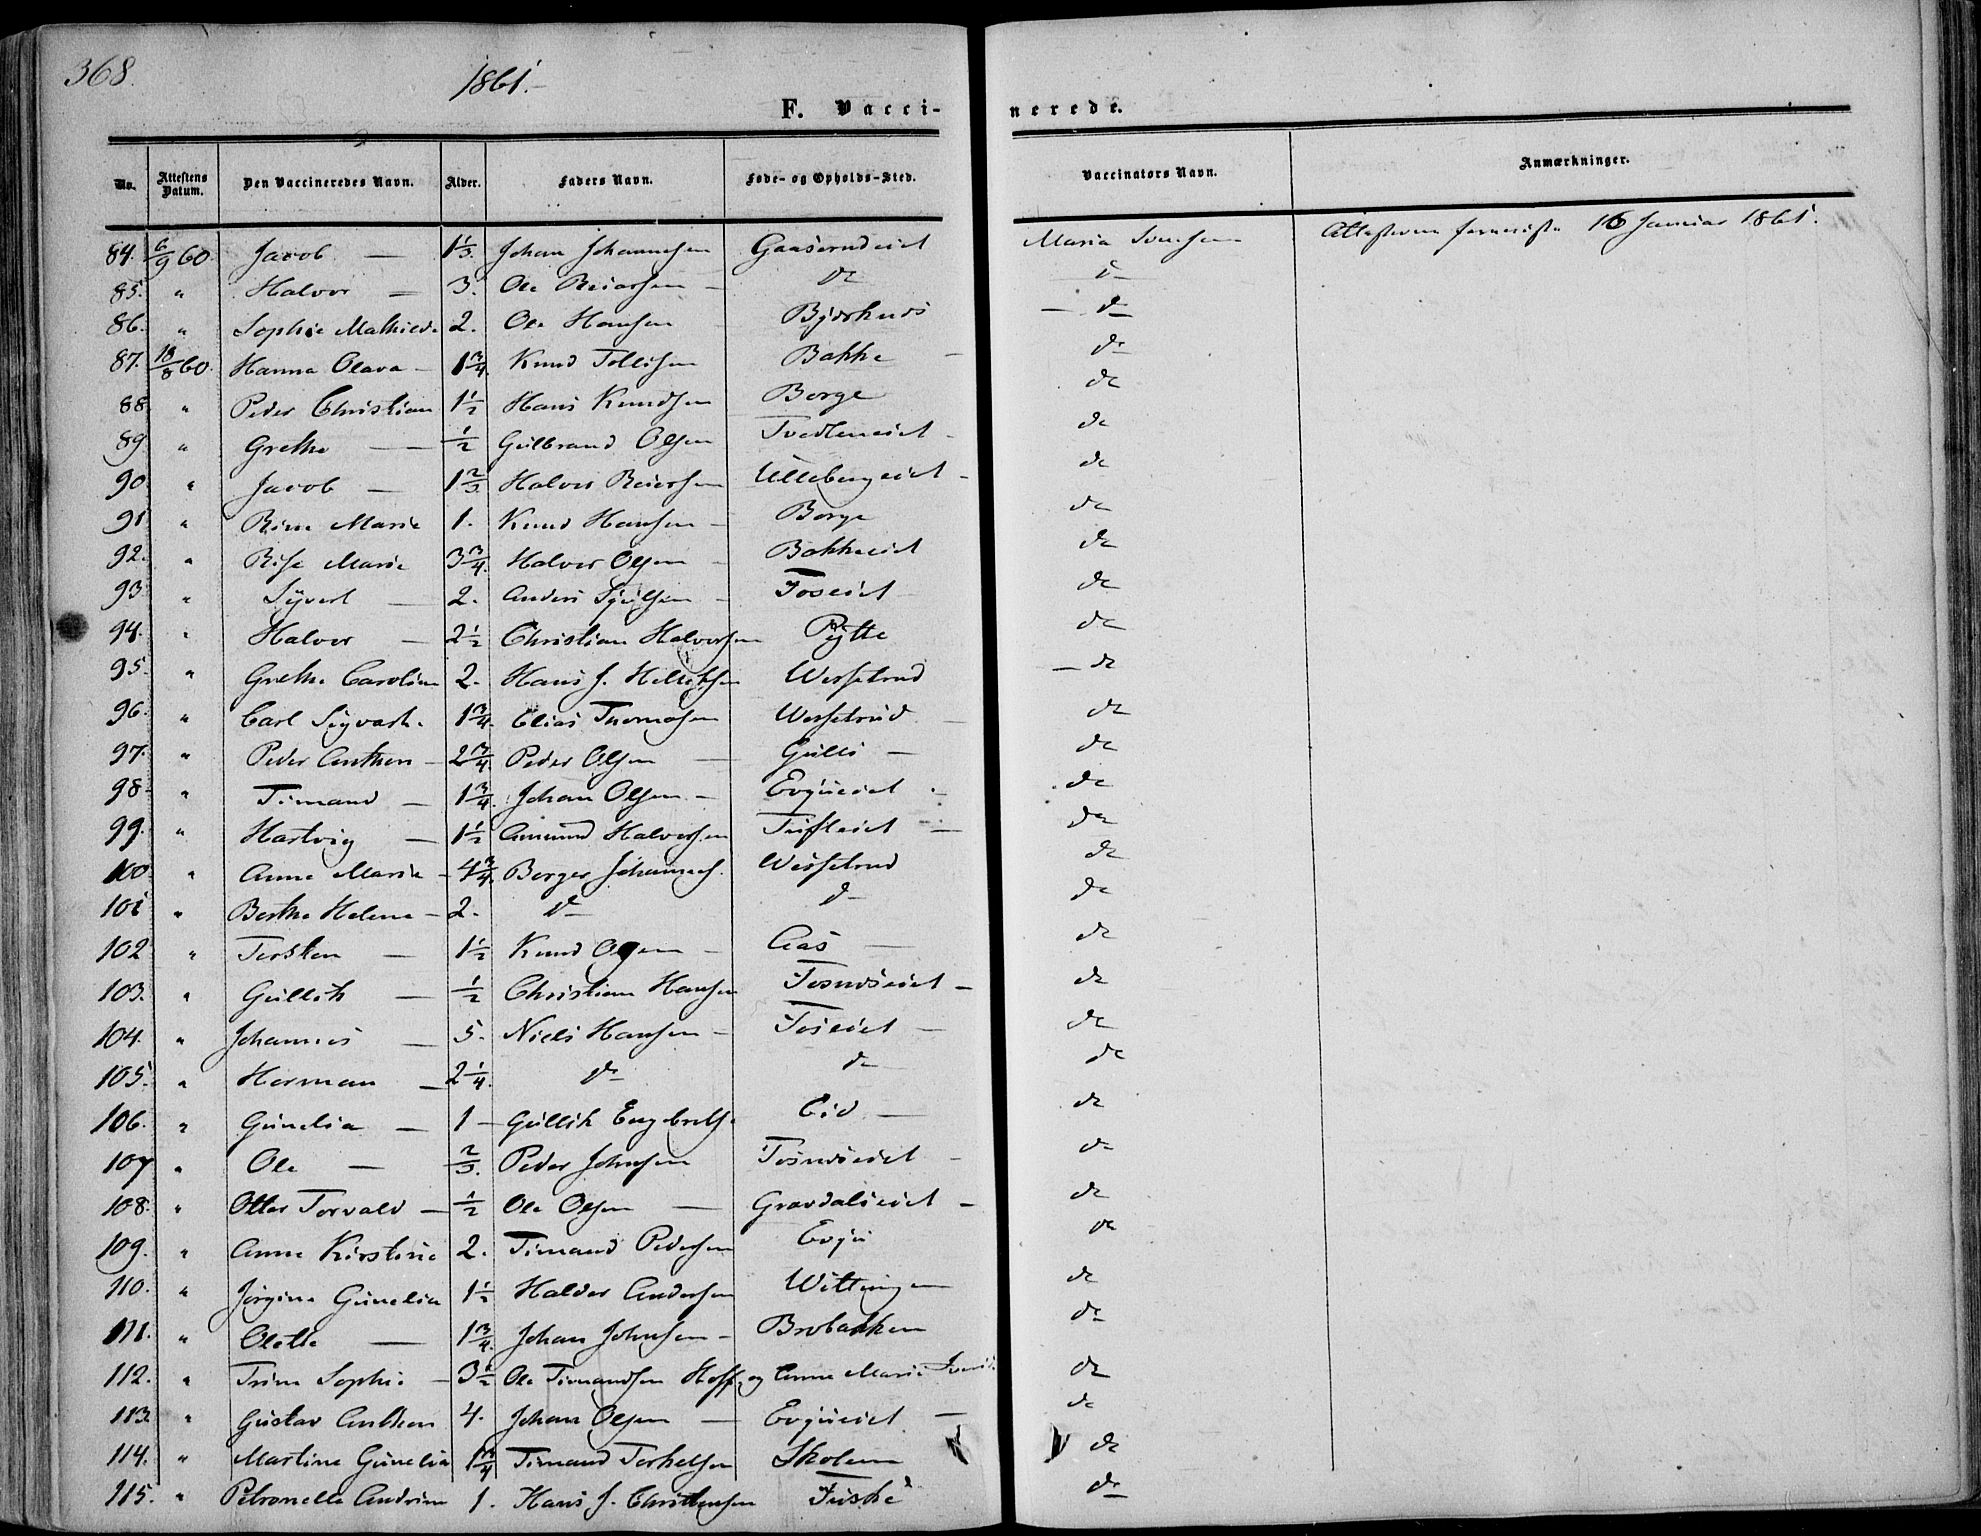 368.
1861.
F. Vacci-
nerede.
No. Attestens Datum. Den Vaccineredes Navn. Alder. Faders Navn. Føde- og Opholds-Sted. Vaccinators Navn. Anmærkninger.
84. 6/9 60. Jacob — 1 1/3. Johan Johannesen Maria 16 Januar 1861.
85. " Halvor — 3. Ole Reiersen — do do
86. " Sophie Mathilde 2. Ole Hansen — do
87. 18/8 60. Hanna Olava — 1 3/4. Knud Tollefsen Bakke — do
88 " Peder Christian 1 1/2 Hans Knudsen Borge do
89. " Grethe — 1/2 Gulbrand Olsen Tvedteneiet — do
90. " Jacob — 1 2/3 Halvor Reiersen Ullebergeiet — do
91 " Marie 1. Knud Hansen — Borge do
92. " Marie 3 3/4. Halvor Olsen — Bakkeeiet do
93 " Syvert — 2. Anders Toseiet do
94. " Halvor — 2 1/2 Christian Halvorsen Pytte do
95. " Grethe Caroline 2. Hans J. Wersetrud — do
96. " Carl Sigvart. 1 3/4. Elias Thomasen Wersetrud — do
97. " Peder Anthon — 2 3/4. Peder Olsen — Gulli — do
98 " Timand — 1 3/4. Johan Olsen — Evjueiet — do
99. " Hartvig — 1 1/2 Amund Halvorsen Tufteiet — do
100. " Anne Marie — 4 3/4. Borger Johannes. Wersetrud do
101 " Berthe Helene — 2. do do do
102 " Torsten — 1 1/2 Knud Olsen — Aas — do
103. " Gullik — 1/2 Christian Hansen — do
104. " Johannes — 5. Niels Hansen — Toseiet — do
105. " Herman — 2 1/4. do do do
106. " Gunelia — 1 — Gullik Engebrets. Eid — do
107 " Ole — 2/3. Peder Johnsen — do
108. " Otter Torvald — 1/2 Ole Olsen — Gravdalseiet — do
109. " Anne Kirstine 2. Timand Pedersen Evju do
110. " Jørgine Gunelia 1 1/2 Halvor Andersen Wittingen do
111. " Olette — 1 3/4. Johan Johnsen — Brobakken do
112. " Trine Sophie — 3 1/2 Ole Timandsen Hoff, og Anne Marie do
113. " Gustav Anthon 4. Johan Olsen — Evjueiet — do
114. " Martine Gunelia 1 3/4 Timand Torkelsen Skolem do
115. " Petronelle Andrine 1. Hans J. Christensen do